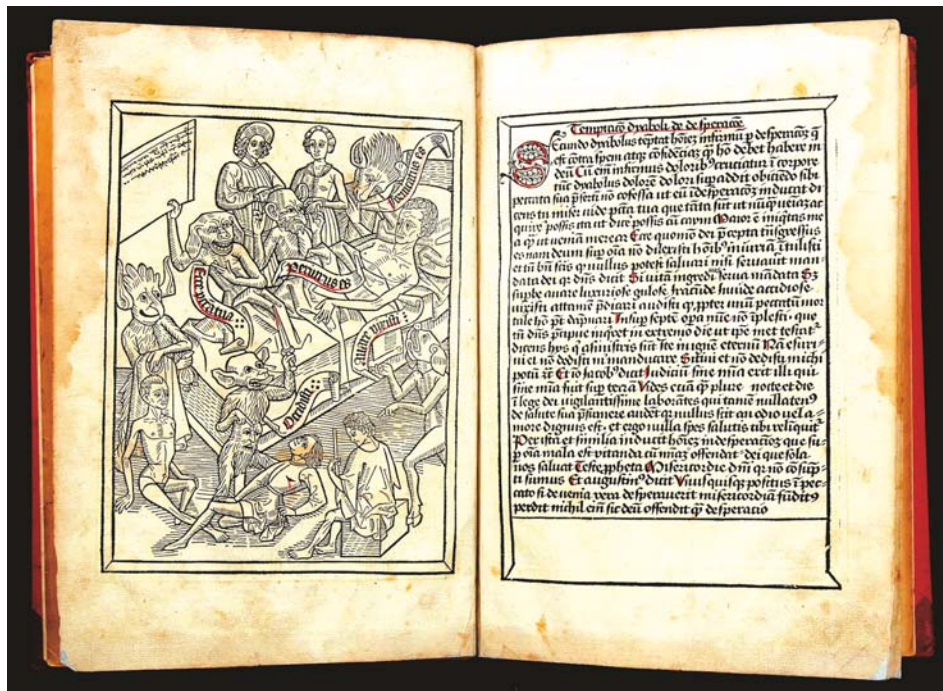 Fornicatus es
Periurus es
Ecce pccata tua
auare vixisti
Occidisti
Temptacio dyaboli de desperacōe
Secundo dyabolus tēptat hoīez infirmū p desperacōz q̄
est cōtra spem atqȝ cōfidēciaȝ quā hō debet habere in
deū Cū em̄ infirmus dolorib⁹ cruciatur ī corpore
tūc dyabolus dolorē dolori sup̄ addit obiciēdo sibi
peccata sua p̄sertī nō cōfessa ut eū ī desperacōȝ inducat di
cens tu miser vide pctā tua que tāta sūt ut nūqȝ veniaȝ ac
quire possis ita ut dice possis cū caym Maior ē iniqtas me
a qȝ ut veniā merear Ecce quomō dei p̄cepta tn̄sgressus
es nam deum sup oīa nō dilexisti hoībȝ iniuriā ītulisti
et tn̄ bn̄ scis qȝ nullus potest saluari nisi seruauerit man
data dei qr dn̄s dicit Si uis ad vitā ingredi serua mādata Sȝ
supbe auare luxuriose gulose iracūde īuide accidiose
vixisti attamē p̄dicari audisti qȝ ppter unū peccatū mor
tale hō pt dāpnari Insup septē opa mīe nō īplesti que
tn̄ dn̄s p̄cipue inqret in extremo die ut ipe met testatᵘ
dicens hys q a sinistris sūt Ite in ignē eternū Nā esuri
ui et nō dedistis m̄ manducare Sitiui et nō dedistis michi
potū et Et iō iacob⁹ dicit Iudiciū sine mīa erit illi qui
sine mīa fuit sup terrā Vides etiā qȝ plures nocte et die
ī lege dei vigilantissime laborātes qui tamē nullaten⁹
de salute sua p̄sumere audēt qr nullus scit an odio vel a
more dignus est et ergo nulla spes salutis tibi relīquitᵘ
Per ista et similia inducit hoīez in desperacōȝ que su
p oīa mala est vitanda cū mīaȝ offendat dei que sola
nos saluat Teste ppheta Misericordie dn̄i qr nō cōsūp
ti sumus Et augustin⁹ dicit Vnusquisqȝ positus ī pec
cato si de venia vera desperauerit misericordiā fūdit⁹
perdit nichil em̄ sic deū offendit qȝ desperatio